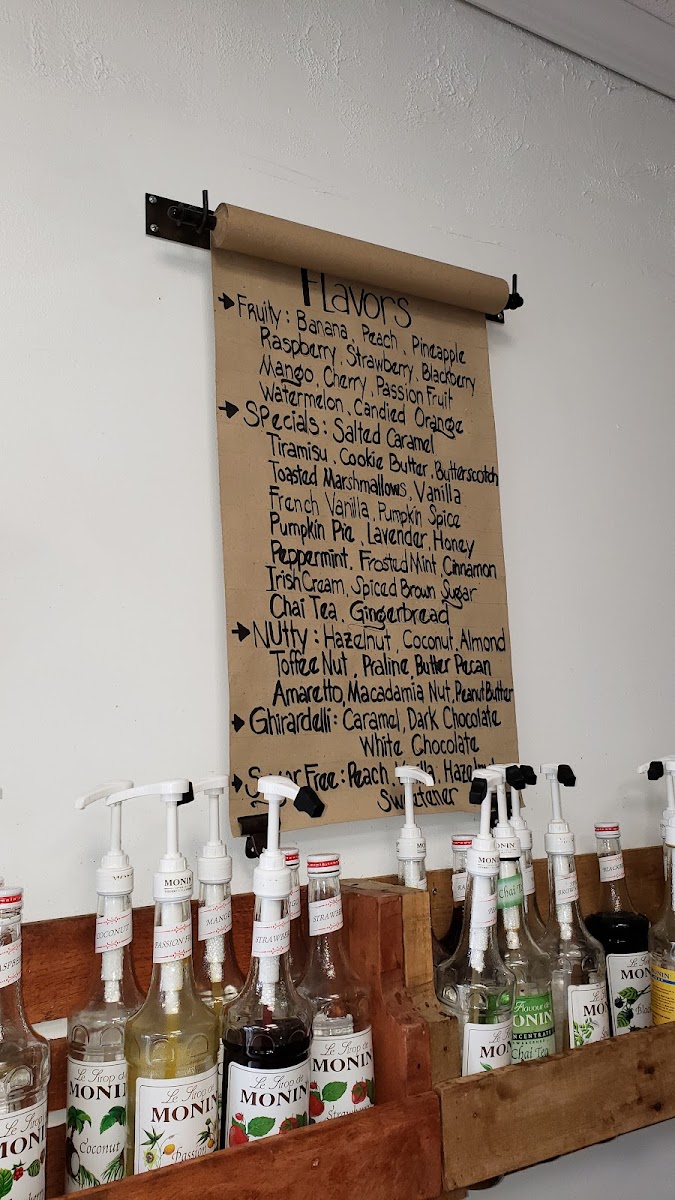 Flavors
Fruity: Banana, Peach, Pineapple
Raspberry, Strawberry, Blackberry
Mango, Cherry, Passion Fruit
Watermelon, Candied Orange
Specials: Salted Caramel
Tiramisu, Cookie Butter, Butterscotch
Toasted Marshmallows, Vanilla
French Vanilla, Pumpkin Spice
Pumpkin Pie, Lavender, Honey
Peppermint, Frosted Mint, Cinnamon
Irish Cream, Spiced Brown Sugar
Chai Tea, Gingerbread
Nutty: Hazelnut, Coconut, Almond
Toffee Nut, Praline, Butter Pecan
Amaretto, Macadamia Nut, Peanut Butter
Ghirardelli: Caramel, Dark Chocolate
White Chocolate
Sugar Free: Peach, Vanilla, Hazelnut
Sweetener
MONIN
MONIN
MONIN
MONIN
COCONUT
PASSION F
MANGO
STRAWBE
STRAWBE
Chai Tea
Le Sirop de
MONIN
Coconut
Le Sirop de
MONIN
Passion
Le Sirop de
MONIN
Le Sirop de
MONIN
Strawbe
MONIN
CONCENTRA
Chai Tea